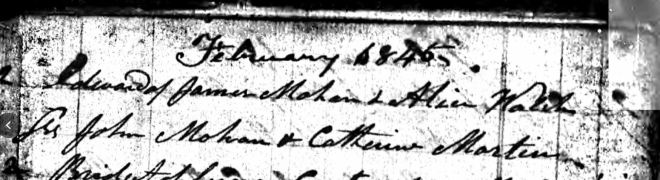 February 1845.
Edward of James Mohan & Alice Walsh
Sp John Mohan & Catherine Martin
Bridget of